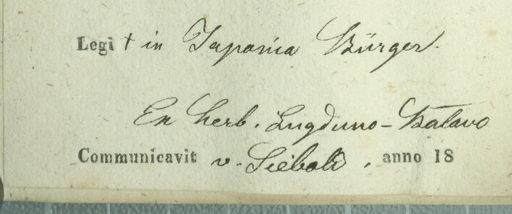 Legit in Japonia Bürger.
Ex herb. Lugduno-Batavo
Communicavit v. Siebold, anno 18